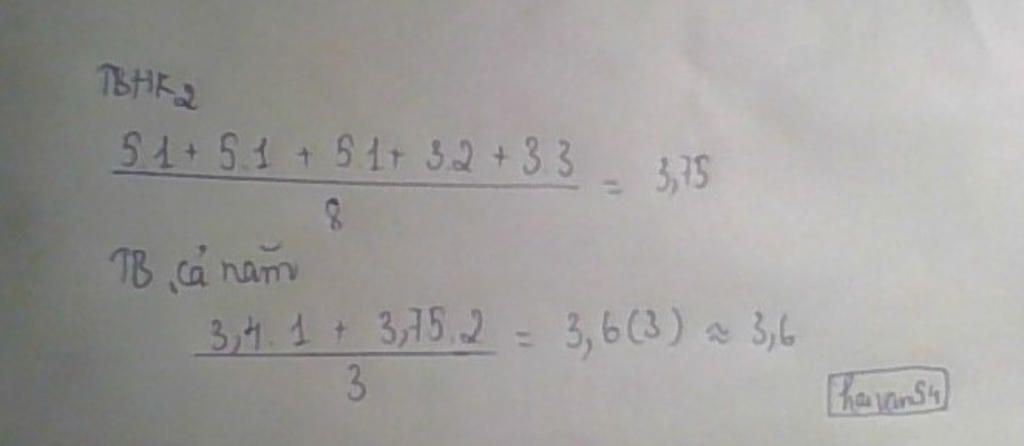 TBHK2
5.1 + 5.1 + 5.1 + 3.2 + 3.3
8
= 3,75
TB cả năm
3,4.1 + 3,75.2
3
= 3,6(3) ≈ 3,6
haivan54